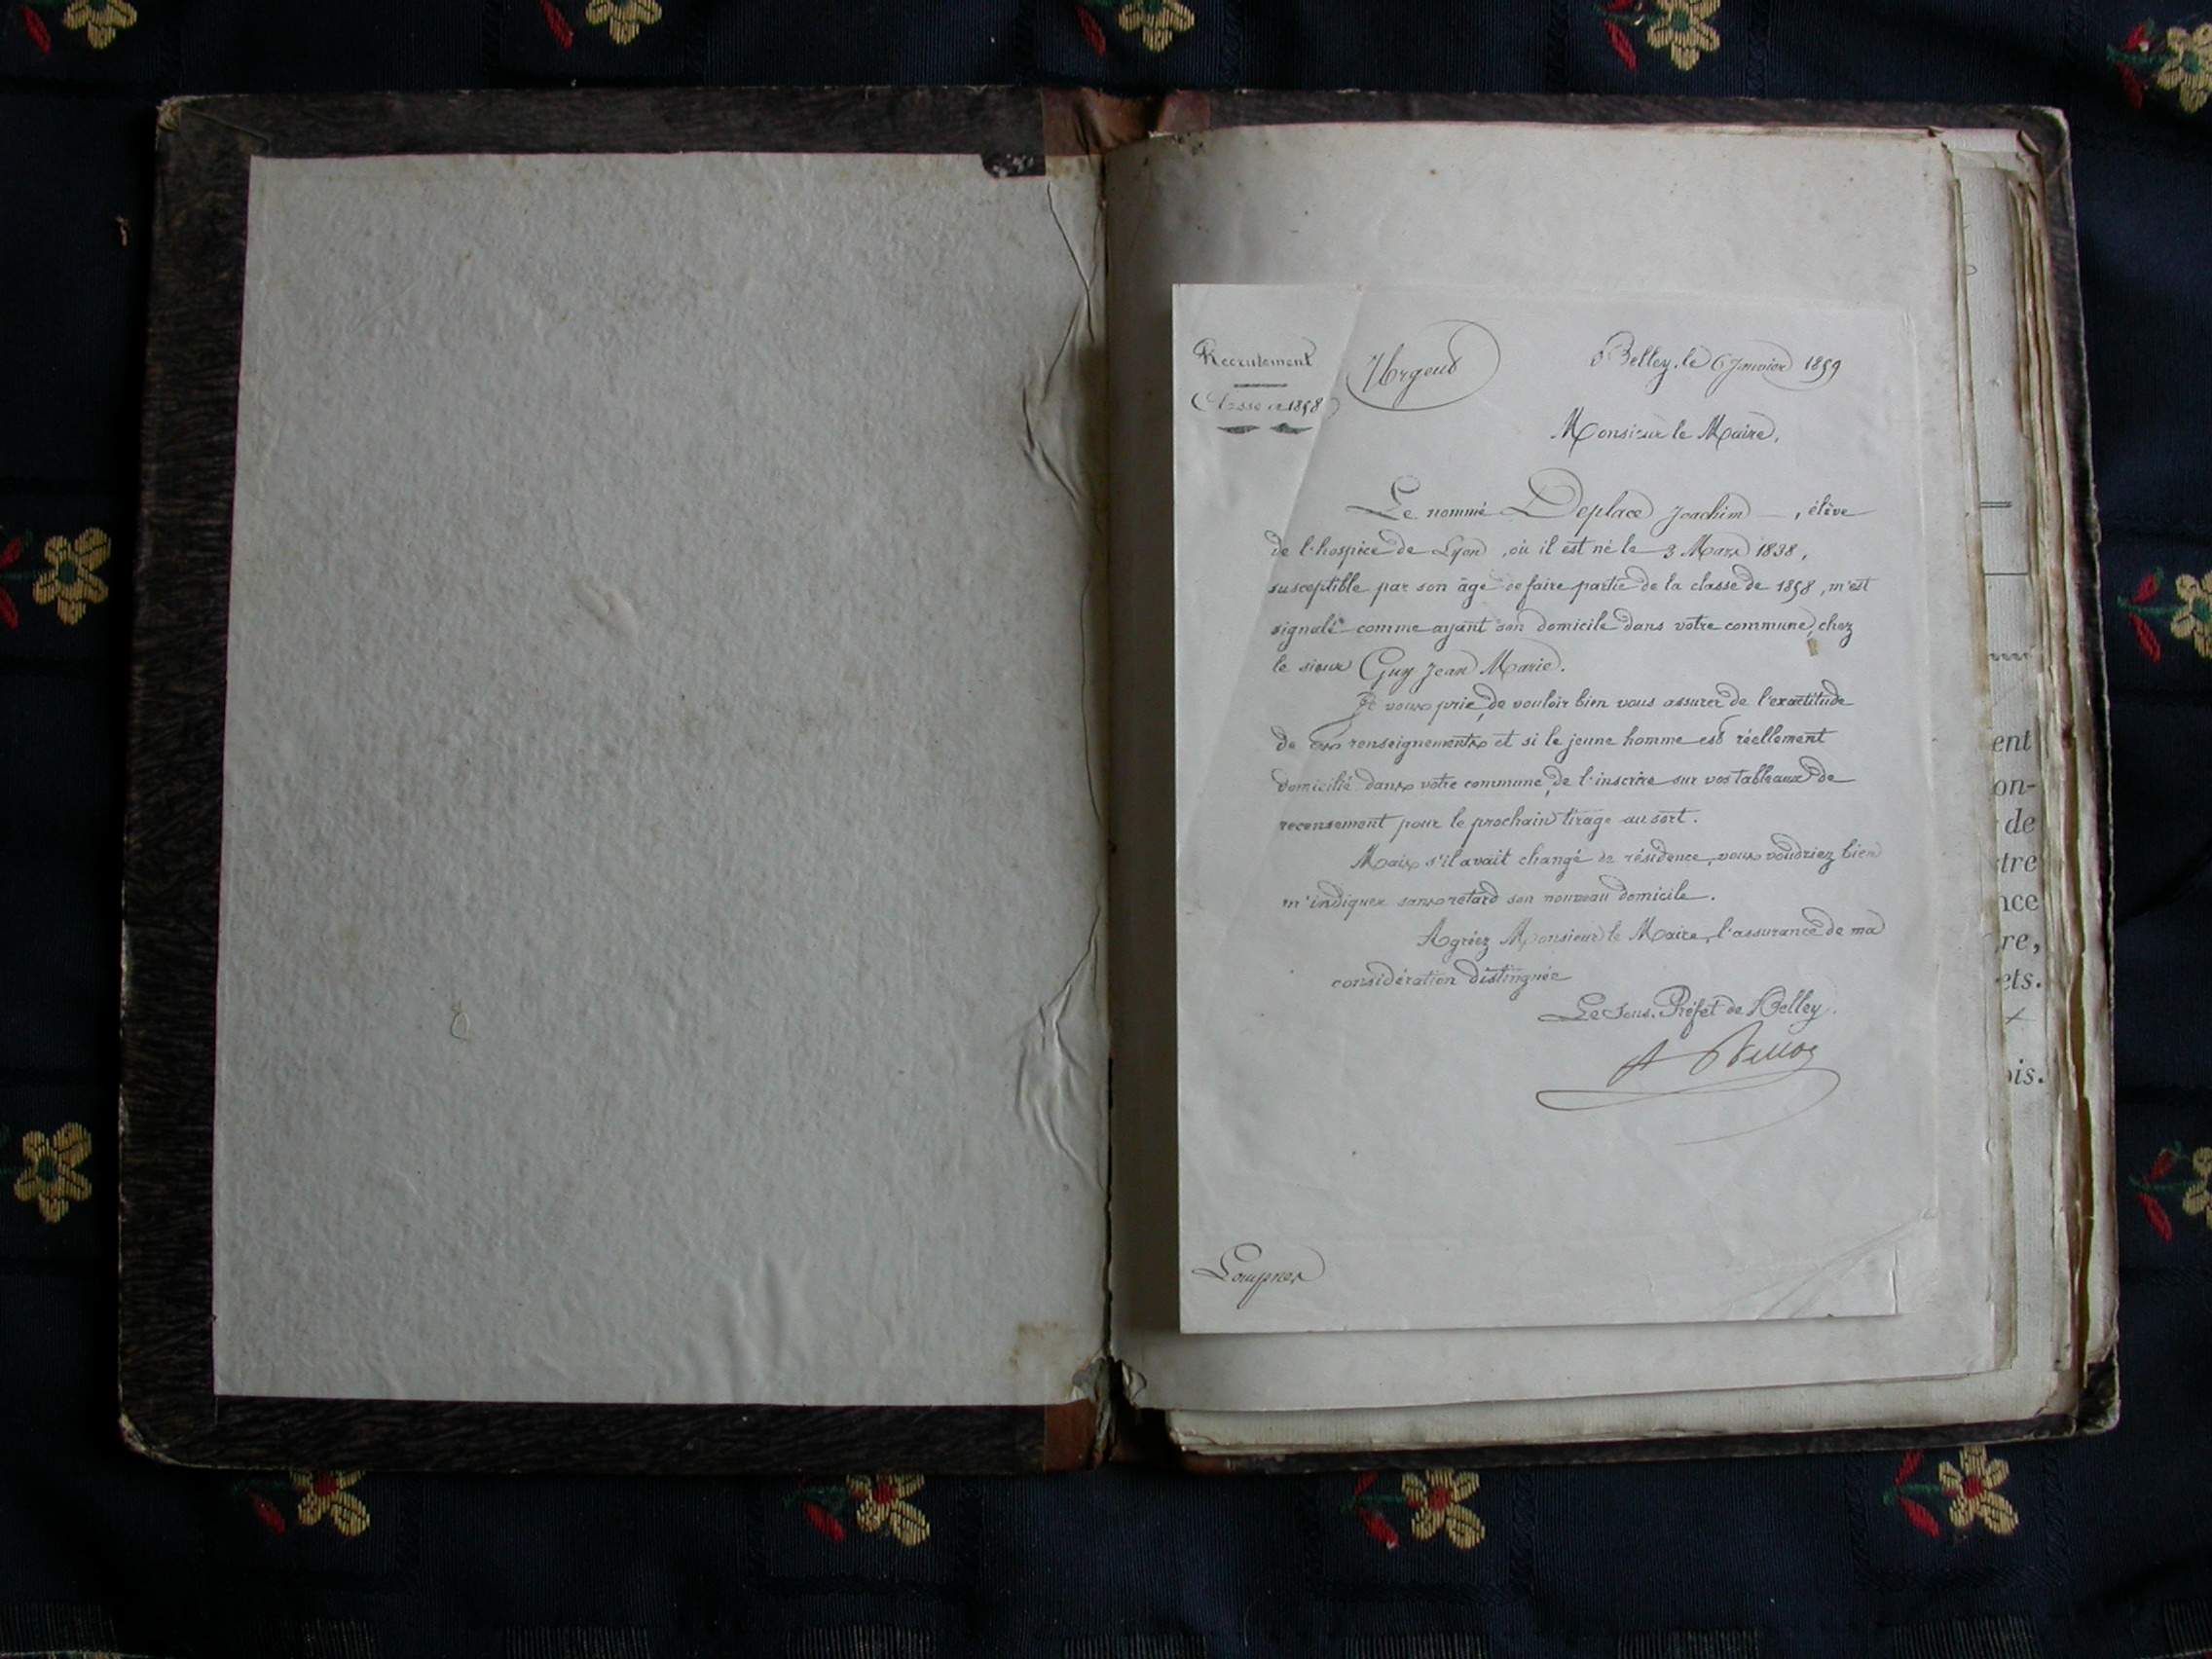 Recrutement
Classe de 1858
Urgent
Belley, le 6 Janvier 1859
Monsieur le Maire,
Le nommé Deplace Joachim, élève
de l'hospice de Lyon, où il est né le 3 Mars 1838,
susceptible par son âge de faire partie de la classe de 1858, m'est
signalé comme ayant son domicile dans votre commune, chez
le sieur Guy Jean Marie.
Je vous prie, de vouloir bien vous assurer de l'exactitude
de ces renseignements et si le jeune homme est réellement
domicilié dans votre commune, de l'inscrire sur vos tableaux de
recensement pour le prochain tirage au sort.
Mais s'il avait changé de résidence, vous voudriez bien
m'indiquer sans retard son nouveau domicile.
Agréez Monsieur le Maire, l'assurance de ma
considération distinguée
Le Sous-Préfet de Belley.
Lompnes
ent
on-
de
tre
nce
re,
ets.
ois.